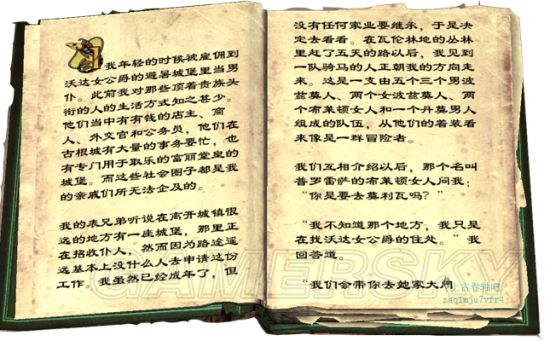 我年轻的时候被雇佣到
沃达女公爵的避暑城堡里当男
仆。此前我对那些顶着贵族头
衔的人的生活方式知之甚少。
他们当中有有钱的店主、商
人、外交官和公务员，他们在
古根城有大量的事务要忙，也
有专门用于取乐的富丽堂皇的
城堡。而这些社会圈子都是我
的亲戚们所无法企及的。
我的表兄弟听说在离开城镇很
远的地方有一座城堡，那里正
在招收仆人，然而因为路途遥
远基本上没什么人去申请这份
工作。我虽然已经成年了，但
没有任何家业要继承，于是决
定去看看。在瓦伦林地的丛林
里赶了五天的路以后，我见到
一队骑马的人正朝我的方向走
来。这是一支由五个三个男波
兹莫人、两个女波兹莫人、两
个布莱顿女人和一个丹莫男人
组成的队伍，从他们的着装看
来像是一群冒险者。
我们互相介绍以后，那个名叫
普罗雷萨的布莱顿女人问我：
“你是要去莫利瓦吗？”
“我不知道那个地方，我只是
在找沃达女公爵的住处。”我
回答道。
“我们会带你去她家大门
GAMERSKY
上古卷轴吧
zaqimju7vfr4